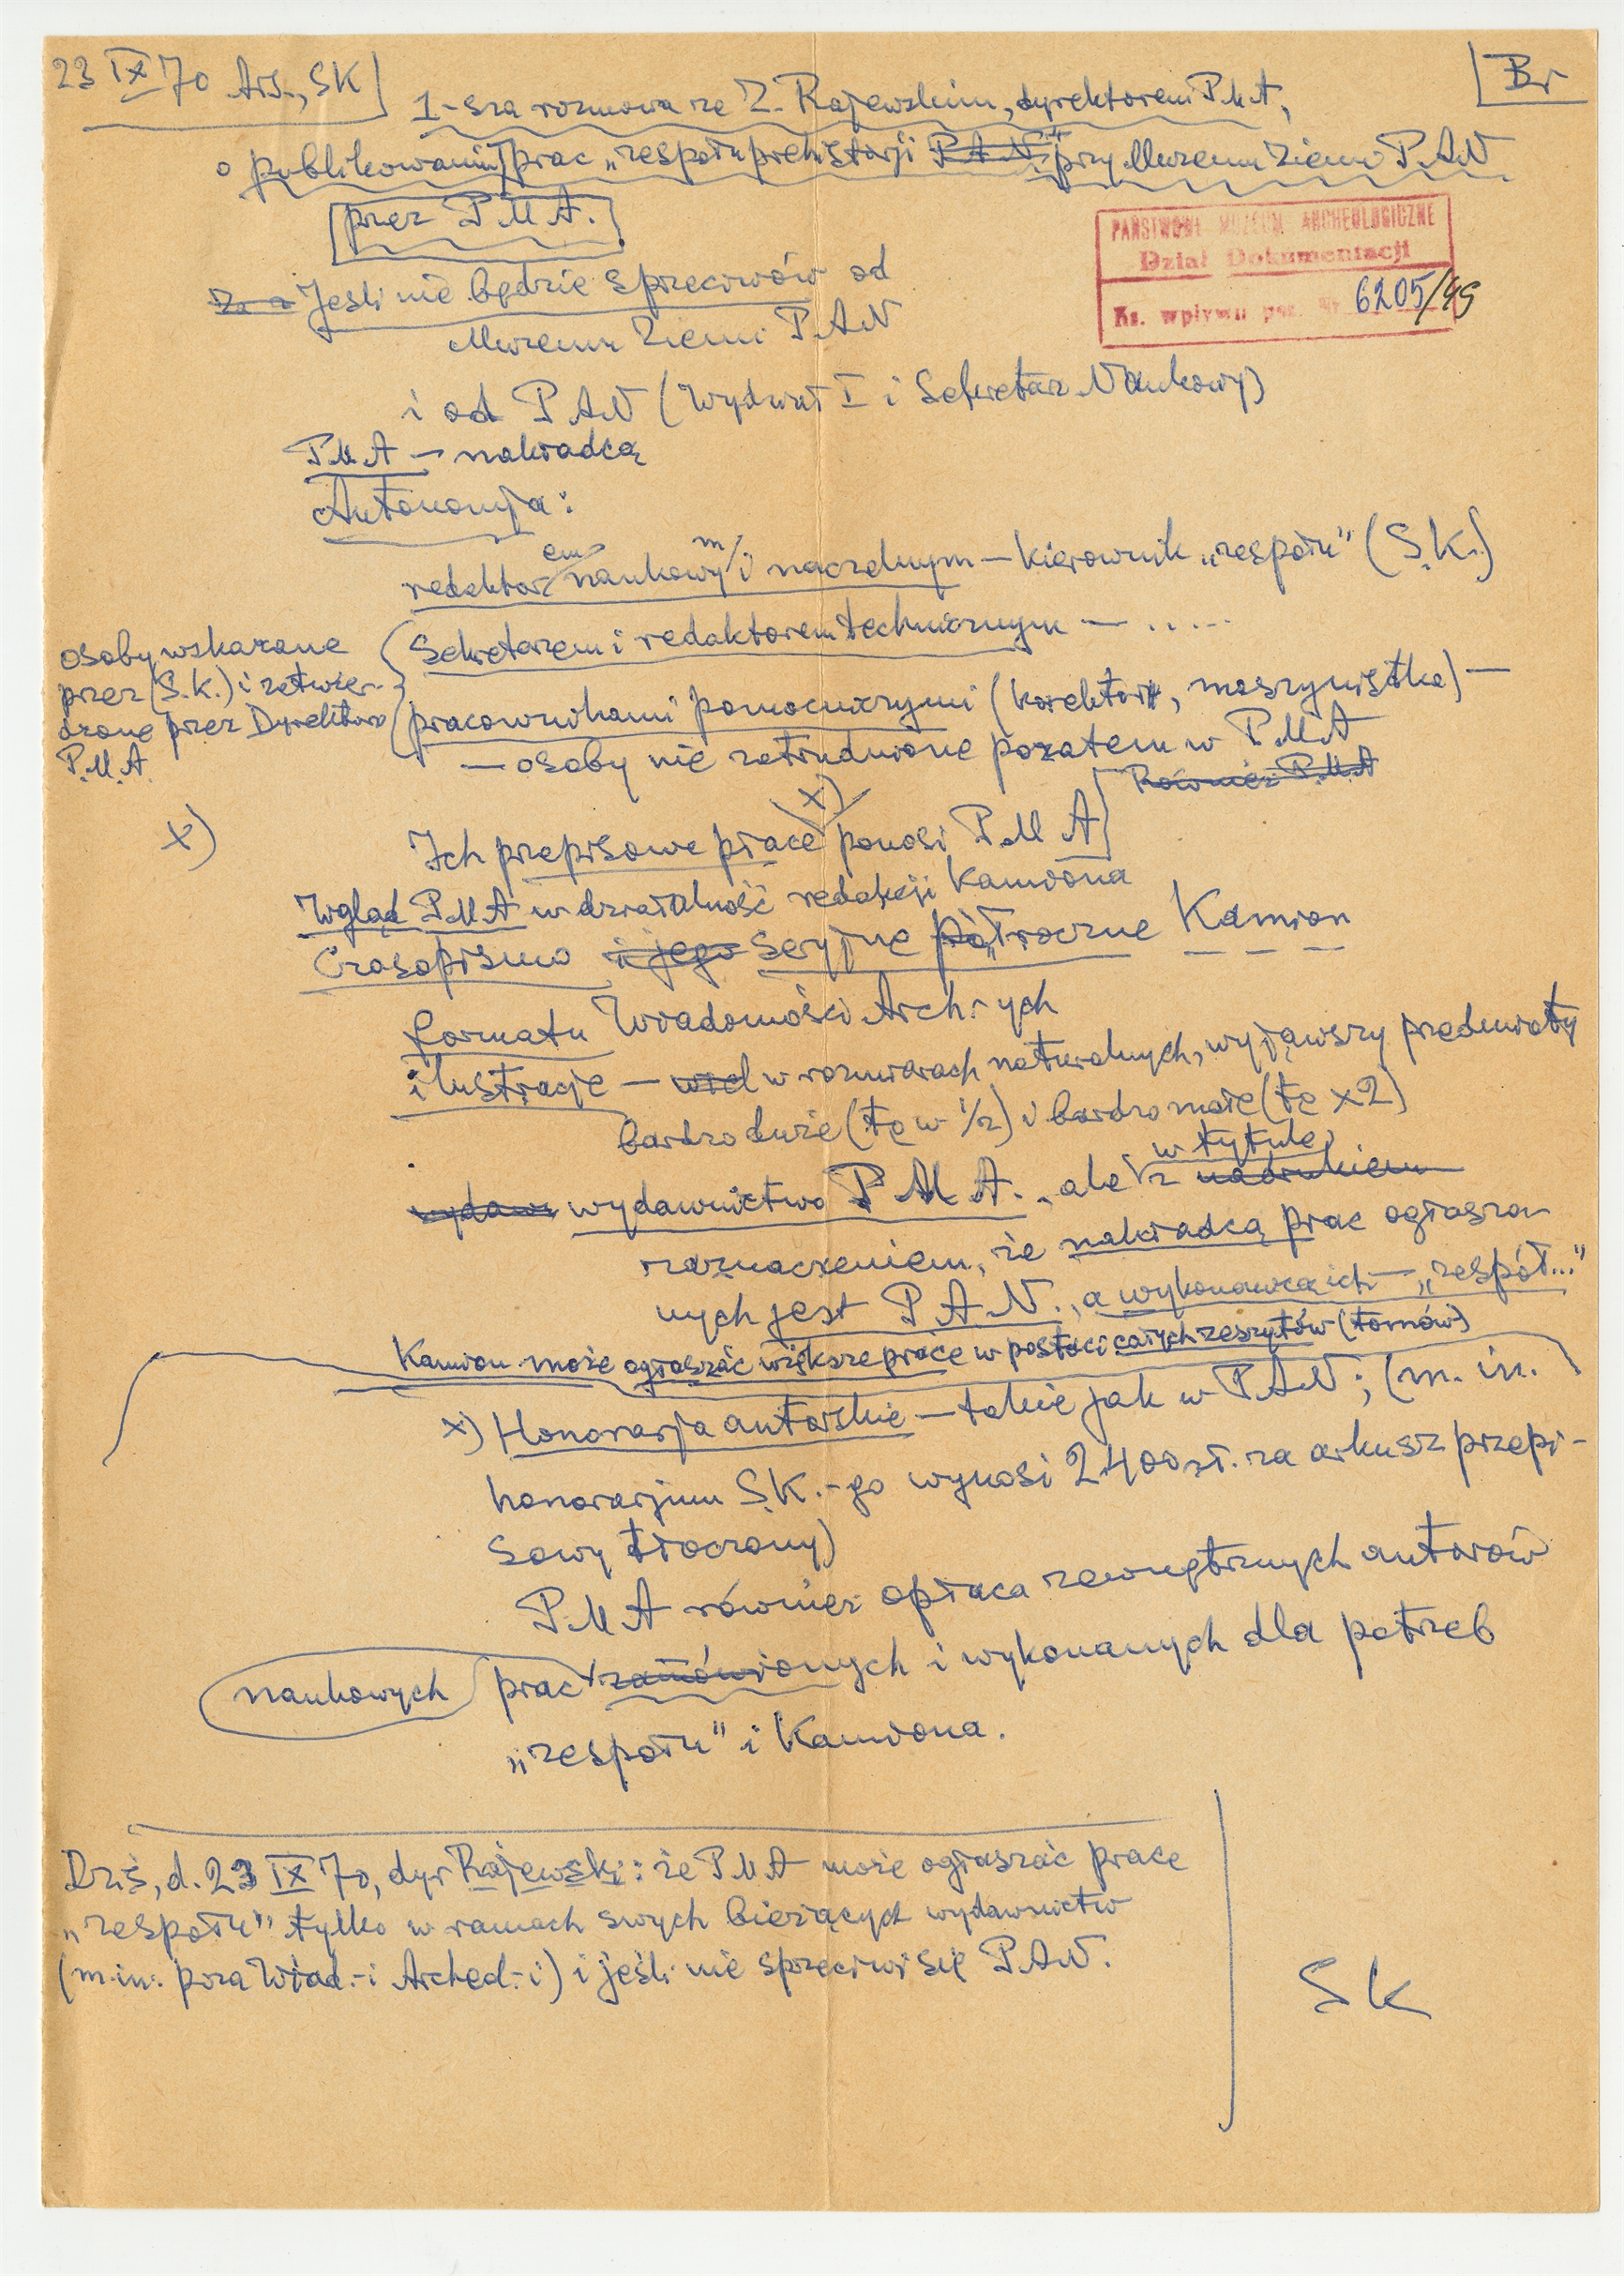 23 IX 70 Ars., SK
Br
1-sza rozmowa ze Z. Rajewskim, dyrektorem P.M.A.,
o publikowaniu prac „zespołu prehistorji P.A.N." przy Muzeum Ziemi PAN
przez P.M.A.
PAŃSTWOWE MUZEUM ARCHEOLOGICZNE
Dział Dokumentacji
Ks. wpływu poz. Nr 6205/99
Za a Jeśli nie będzie sprzeciwów od
Muzeum Ziemi PAN
i od PAN (Wydział I i Sekretarz Naukowy)
P.M.A – nakładcą
Autonomja:
redaktorem naukowym i naczelnym – kierownik „zespołu" (S.K.)
Sekretarzem i redaktorem technicznym – .....
osoby wskazane
przez (S.K.) i zatwier-
dzone przez Dyrektora
P.M.A.
pracownikami pomocniczymi (korektor, maszynistka) –
– osoby nie zatrudnione pozatem w P.M.A
Również P.M.A
x)
x)
Ich przepisowe płace ponosi P.M.A
Wgląd P.M.A w działalność redakcji Kamiona
Czasopismo i jego Seryjne półroczne Kamion
formatu Wiadomości Arch-ych
ilustracje – w rozmiarach naturalnych, wyjąwszy przedmioty
bardzo duże (te w 1/2) i bardzo małe (te x2)
w tytule
wydawn wydawnictwo P.M.A., ale z nadrukiem
zaznaczeniem, że nakładcą prac ogłasza-
nych jest P.A.N., a wykonawcą ich – „zespół..."
Kamion może ogłaszać większe prace w postaci całych zeszytów (tomów)
x) Honorarja autorskie – takie jak w PAN; (m. in.
honorarjum S.K.-go wynosi 2400 zł. za arkusz przepi-
sowy tłoczony)
P.M.A również opłaca zewnętrznych autorów
naukowych prac zamówionych i wykonanych dla potrzeb
„zespołu" i Kamiona.
Dziś, d. 23 IX 70, dyr Rajewski: że P.M.A może ogłaszać prace
„zespołu" tylko w ramach swych bieżących wydawnictw
(m. in. poza Wiad.-i Archeol.-i) i jeśli nie sprzeciwi się P.A.N.
SK